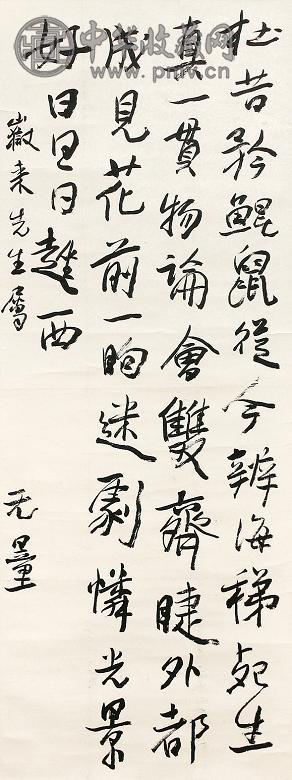 中华收藏网
枉昔矜鯤鼠從今辨海稊死生
真一貫物論會雙齊睫外都
成見花前一晌迷劇憐光景
好日日趖西
来先生屬
无量